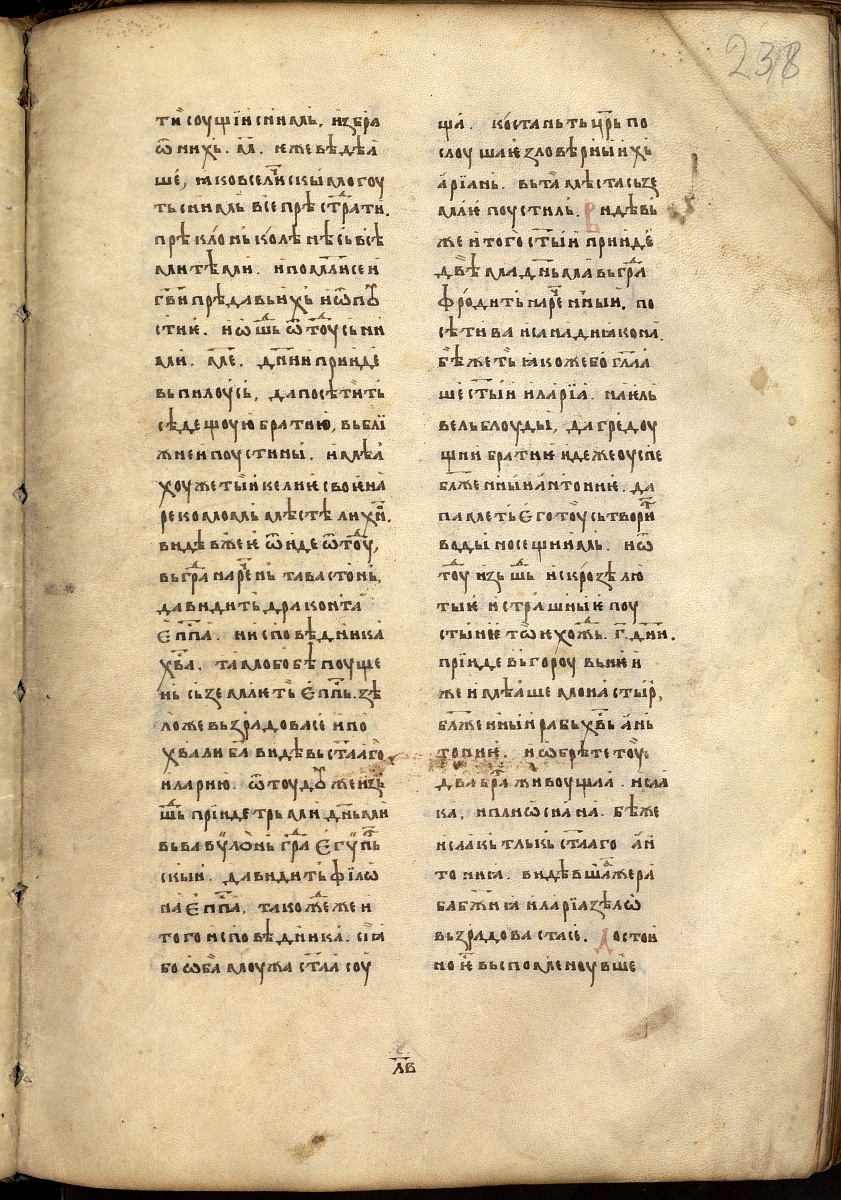 238
ти соущїи с нимь. избра
ѿ нихь. м҃. иже ведеа
ше, ꙗко вселнскы могоу
ть с нимь все прѣстрати.
прѣклонь колѣнѣ сь все
ми тѣми. и помлисе и
гв҃и прѣдавь ихь и ѿпꙋ
стик. и ѡшь ѿ тоу сь ни
ми. м҃е. дн҃ии прииде
вь пилоусь, да посѣтить
седещоую братию, вь бли
жнеи поустины. имѣа
хоу же тыи келиѥ своѥ на
рекомомь мѣсте лихн.
видѣв же ѥ ѿиде ѿтоу,
вь гра нарень тавастонь,
да видить драконта
еп҃па. и исповѣдника
хв҃а. тамо бо бѣ поуще
нь сь землѥ ть еп҃пь. зѣ
ло же възрадовасе и по
хвали ба҃ видѣвь ст҃аго
илариѡ. ѿтоудꙋ же изь
шь прїиде трьми дньми
вь вавѵлонь гра егѵпь
скыи. да видить филѡ
на еп҃па. такоже и
того исповѣдника. сїа
бо ѡба моужа ст҃аа соу
ща. костаньть цр҃ь по
слоушаѥ зловѣрныихь
арїань. вь та мѣста сь зе
млѥ поустиль. видѣвь
же и того ст҃ыи прииде
двѣма дн҃ьма вь гра
фродить нареныи. по
сети ваисана диꙗкона.
бѣжеть ꙗкоже бо гл҃аа
ше ст҃ыи иларїа. наѥль
вельблоуды, да гредоу
щии братиѥ идеже оуспе
бл҃жены антониѥ. да
паметь его тоу сьтворит
воды носещиимь. и ѿ
тоу изьшь и скрозѣ лю
тыѥ и страшныѥ поу
стынеѥ тѡѥ хожь. г҃. дн҃и.
прїиде вь гороу вь нѥи
же имѣаше монастыр,
бл҃женыи рабь хв҃ь ань
тониѥ. и ѡбрѣте тоу.
два бра живоуща. исаа
ка, и плиѡсиана. бѣ же
исаакь тлькь ст҃аго ан
тониа. видѣвша же ра
ба бж҃иа иларїа зѣлѡ
възрадовастасе. Достои
но ѥ вьспоменоувше
л҃в